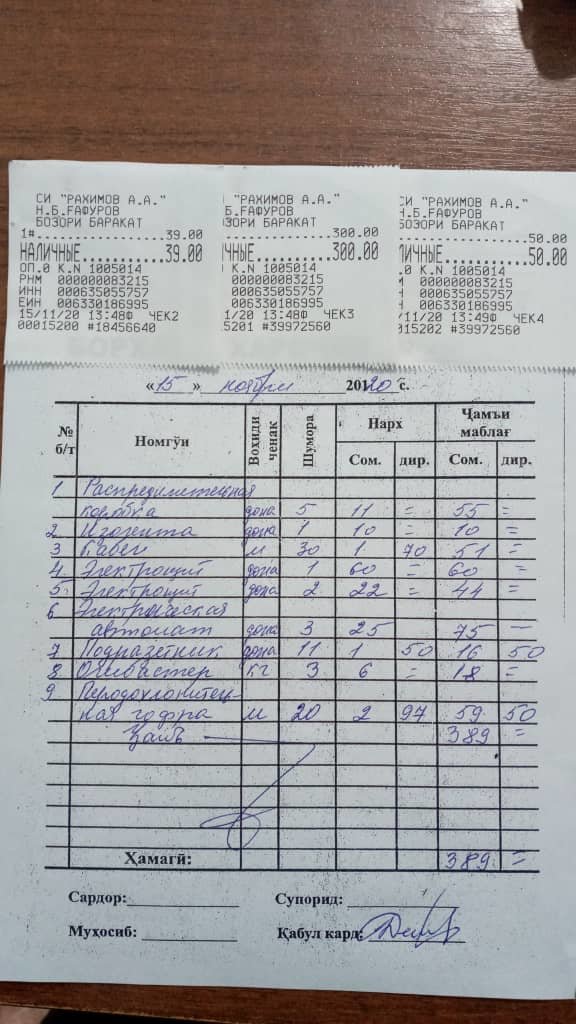 СИ "РАХИМОВ А.А."
Н.Б.ГАФУРОВ
БОЗОРИ БАРАКАТ
1#................39.00
НАЛИЧНЫЕ..........39.00
ОП.0 К.N 1005014
РНМ 000000083215
ИНН 000635055757
ЕИН 006330186995
15/11/20 13:48Ф ЧЕК2
00015200 #18456640
"РАХИМОВ А.А."
Б.ГАФУРОВ
БОЗОРИ БАРАКАТ
................300.00
ЧНЫЕ..........300.00
К.N 1005014
000000083215
000635055757
006330186995
1/20 13:48Ф ЧЕК3
5201 #39972560
СИ "РАХИМОВ А.А."
Н.Б.ГАФУРОВ
БОЗОРИ БАРАКАТ
................50.00
ЛИЧНЫЕ..........50.00
.0 К.N 1005014
000000083215
000635055757
006330186995
11/20 13:49Ф ЧЕК4
015202 #39972560
«15» ноябри 20120 с.
№ б/т Номгӯи Воҳиди ченак Шумора Нарх Ҷамъи маблағ
Сом. дир. Сом. дир.
1 Распределительная
коробка дона 5 11 = 55 =
2 Изолента дона 1 10 = 10 =
3 Кабел м 30 1 70 51 =
4 Электрощит дона 1 60 = 60 =
5 Электрощит дона 2 22 = 44 =
6 Электрическая
автомат дона 3 25 75 —
7 Подразетник дона 11 1 50 16 50
8 Олибастер кг 3 6 = 18 =
9
ная гофра м 20 2 97 59 50
Ҷамъ 389 =
Ҳамагӣ: 389 =
Сардор: Супорид:
Муҳосиб: Қабул кард: